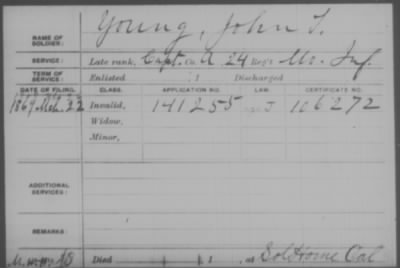 NAME OF SOLDIER: Young, John
SERVICE: Late rank, Capt. Co. A, 24 Reg't Mo. Inf.
TERM OF SERVICE: Enlisted 1 Discharged
DATE OF FILING. CLASS. APPLICATION NO. LAW. CERTIFICATE NO.
1869 Mch. 22 Invalid, 141255 106272
Widow,
Minor,
ADDITIONAL SERVICES:
REMARKS:
Died 1 , at Sold Home Cal